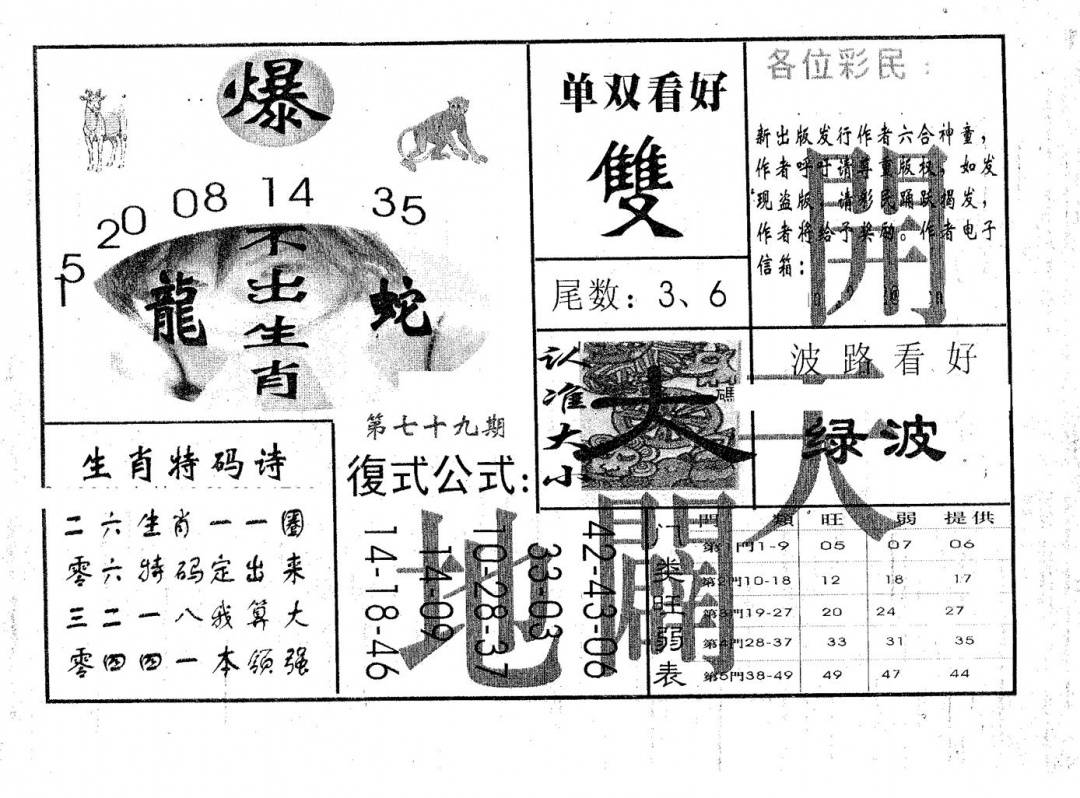 爆
15 20 08 14 35
不出生肖
龍
蛇
单双看好
雙
尾数：3、6
各位彩民：
新出版发行作者六合神童，
作者呼吁请尊重版权，如发
现盗版，请彩民踊跃揭发，
作者将给予奖励。作者电子
信箱：
認准大小
大
波路看好
绿波
開天闢地
第七十九期
復式公式：
42-43-06
33-03
10-28-37
14-09
14-18-46
生肖特码诗
二六生肖一一圈
零六特码定出来
三二一八我算大
零四四一本领强
门类旺弱表
門類 旺 弱 提供
第1門1-9 05 07 06
第2門10-18 12 18 17
第3門19-27 20 24 27
第4門28-37 33 31 35
第5門38-49 49 47 44